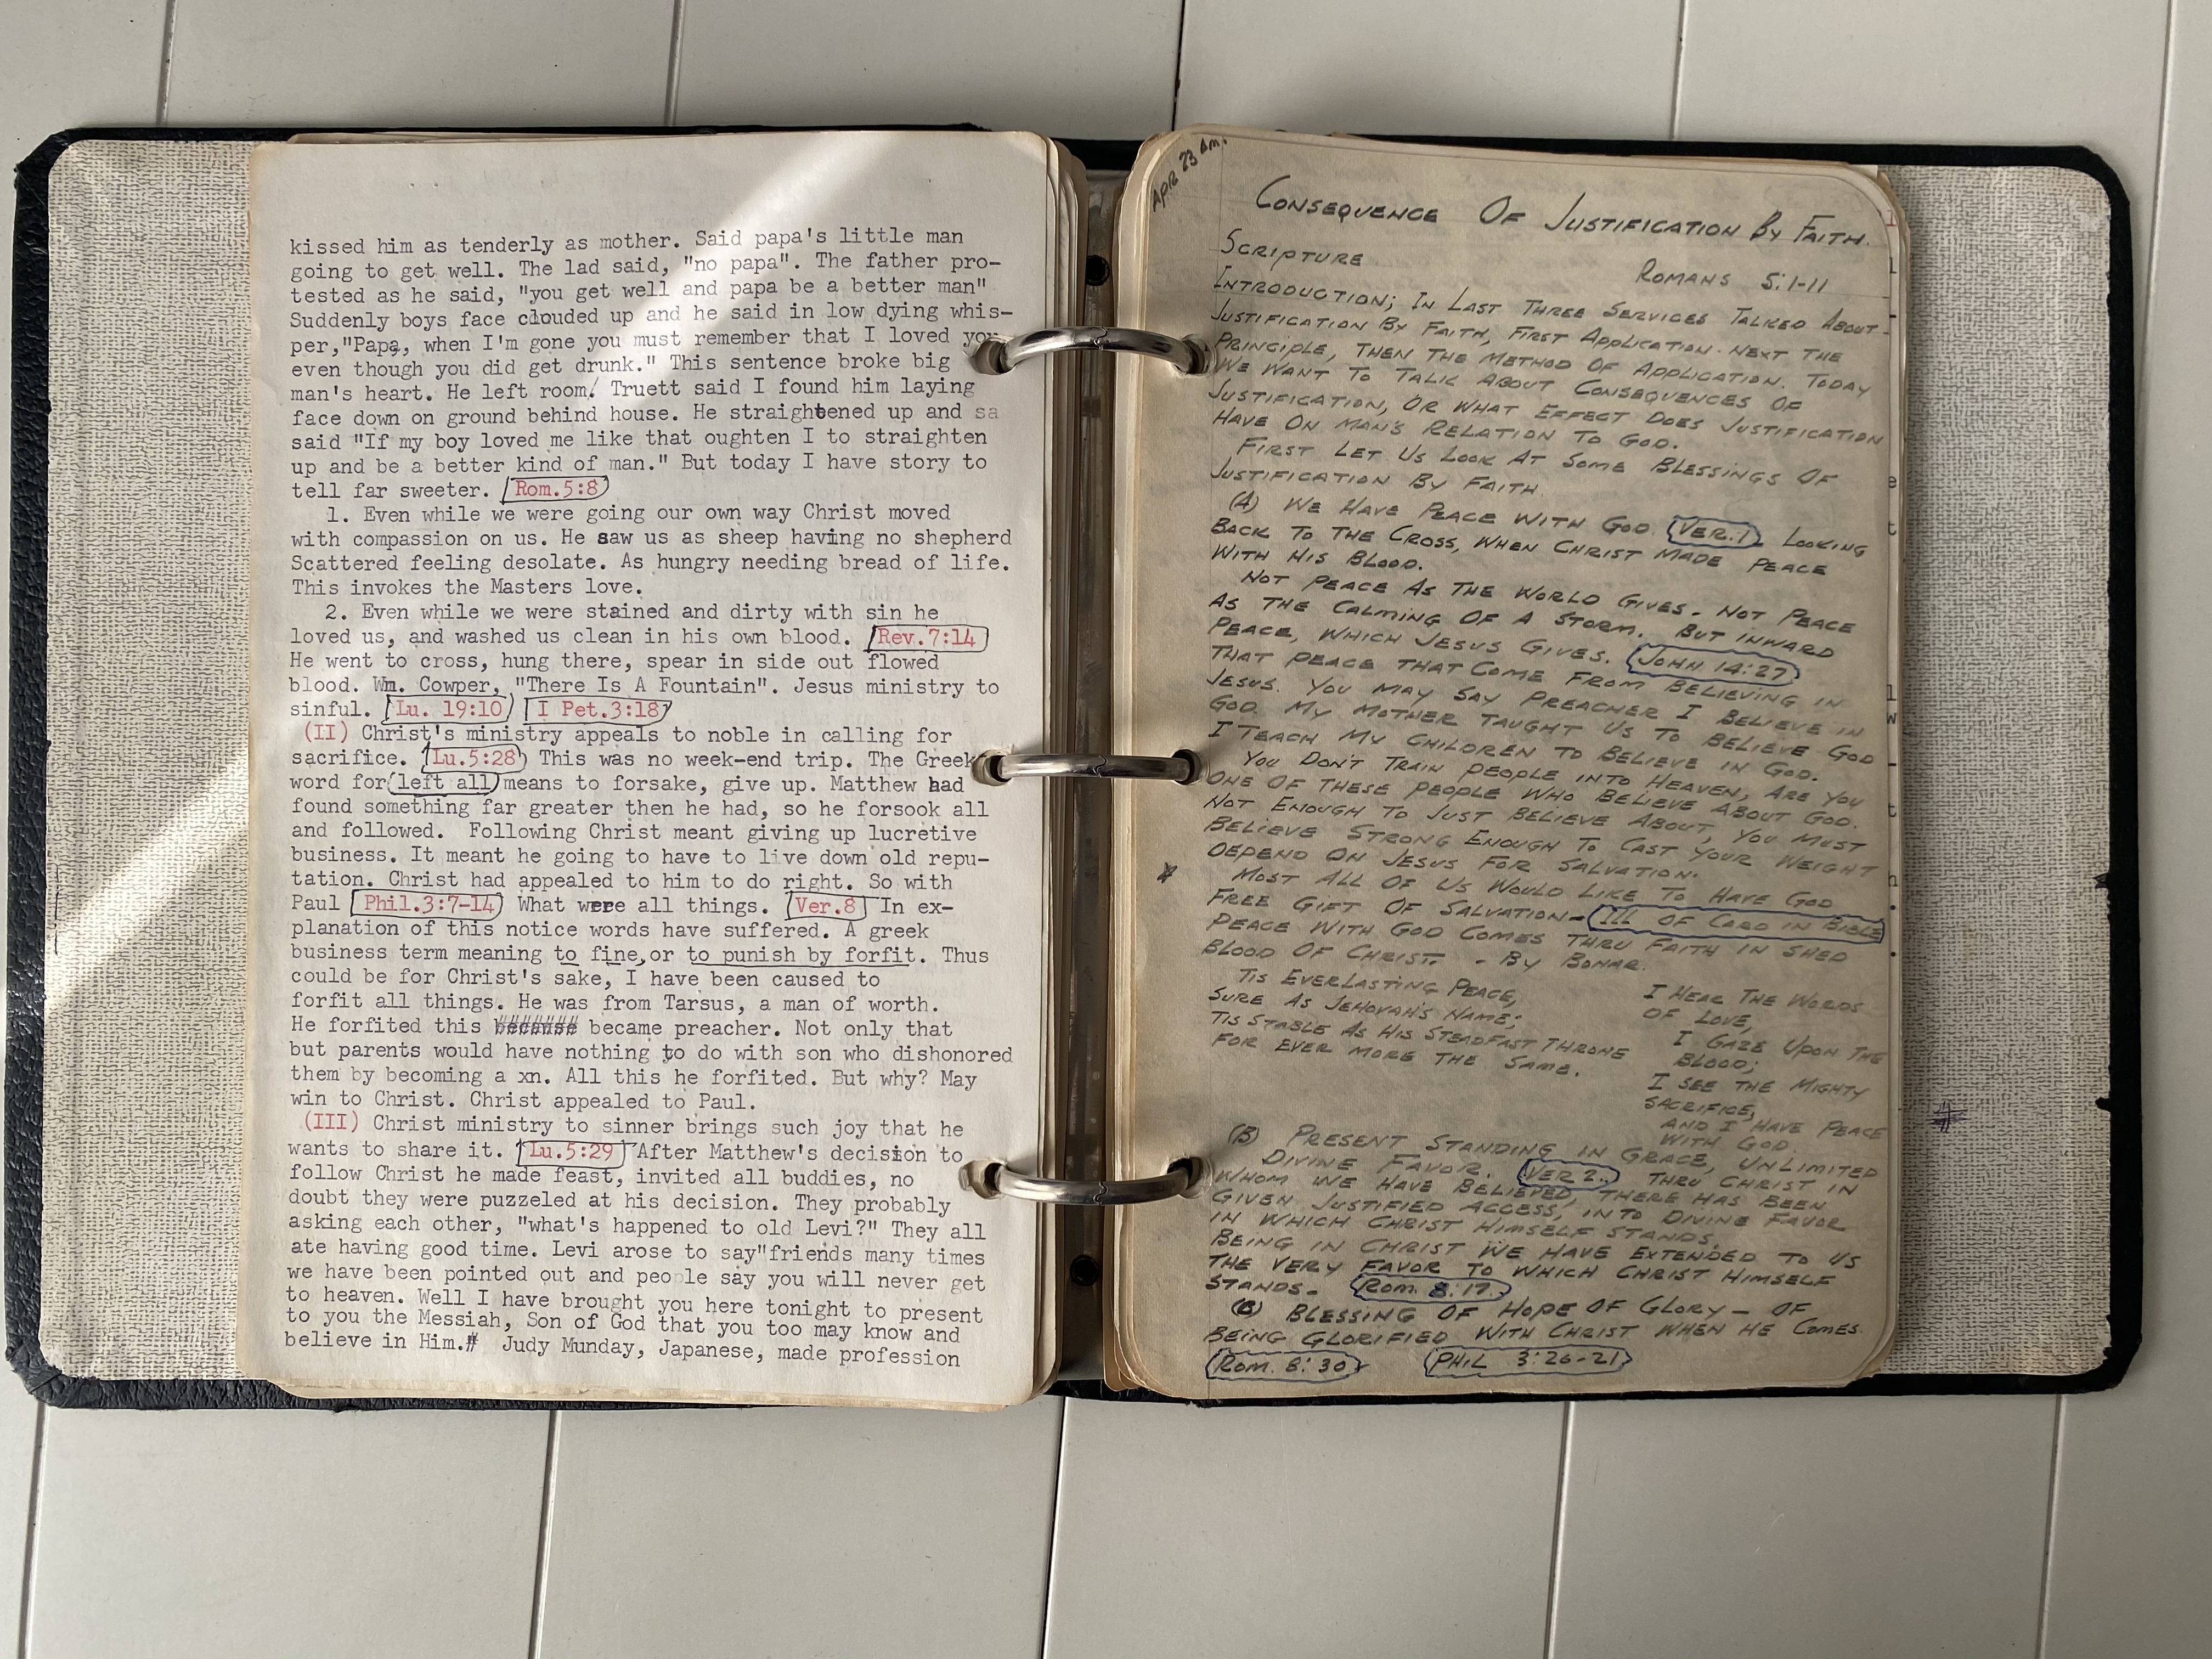 kissed him as tenderly as mother. Said papa's little man
going to get well. The lad said, "no papa". The father pro-
tested as he said, "you get well and papa be a better man"
Suddenly boys face clouded up and he said in low dying whis-
per,"Papa, when I'm gone you must remember that I loved you
even though you did get drunk." This sentence broke big
man's heart. He left room. Truett said I found him laying
face down on ground behind house. He straightened up and sa
said "If my boy loved me like that oughten I to straighten
up and be a better kind of man." But today I have story to
tell far sweeter. Rom.5:8
1. Even while we were going our own way Christ moved
with compassion on us. He saw us as sheep having no shepherd
Scattered feeling desolate. As hungry needing bread of life.
This invokes the Masters love.
2. Even while we were stained and dirty with sin he
loved us, and washed us clean in his own blood. Rev.7:14
He went to cross, hung there, spear in side out flowed
blood. Wm. Cowper, "There Is A Fountain". Jesus ministry to
sinful. Lu. 19:10 I Pet.3:18
(II) Christ's ministry appeals to noble in calling for
sacrifice. Lu.5:28 This was no week-end trip. The Greek
word for left all means to forsake, give up. Matthew had
found something far greater then he had, so he forsook all
and followed. Following Christ meant giving up lucretive
business. It meant he going to have to live down old repu-
tation. Christ had appealed to him to do right. So with
Paul Phil.3:7-14 What were all things. Ver.8 In ex-
planation of this notice words have suffered. A greek
business term meaning to fine,or to punish by forfit. Thus
could be for Christ's sake, I have been caused to
forfit all things. He was from Tarsus, a man of worth.
He forfited this because became preacher. Not only that
but parents would have nothing to do with son who dishonored
them by becoming a xn. All this he forfited. But why? May
win to Christ. Christ appealed to Paul.
(III) Christ ministry to sinner brings such joy that he
wants to share it. Lu.5:29 After Matthew's decision to
follow Christ he made feast, invited all buddies, no
doubt they were puzzeled at his decision. They probably
asking each other, "what's happened to old Levi?" They all
ate having good time. Levi arose to say"friends many times
we have been pointed out and people say you will never get
to heaven. Well I have brought you here tonight to present
to you the Messiah, Son of God that you too may know and
believe in Him.# Judy Munday, Japanese, made profession
Apr 23 Am.
Consequence Of Justification By Faith.
Scripture Romans 5:1-11
Introduction; In Last Three Services Talked About
Justification By Faith, First Application - Next The
Principle, Then The Method Of Application. Today
We Want To Talk About Consequences Of
Justification, Or What Effect Does Justification
Have On Man's Relation To God.
First Let Us Look At Some Blessings Of
Justification By Faith.
(A) We Have Peace With God. Ver.1 Looking
Back To The Cross, When Christ Made Peace
With His Blood.
Not Peace As The World Gives - Not Peace
As The Calming Of A Storm. But Inward
Peace, Which Jesus Gives. John 14:27
That Peace That Come From Believing In
Jesus. You May Say Preacher I Believe In
God. My Mother Taught Us To Believe God
I Teach My Children To Believe In God.
You Don't Train People Into Heaven, Are You
One Of These People Who Believe About God.
Not Enough To Just Believe About, You Must
Believe Strong Enough To Cast Your Weight
Depend On Jesus For Salvation.
* Most All Of Us Would Like To Have God
Free Gift Of Salvation - Ill Of Card In Bible
Peace With God Comes Thru Faith In Shed
Blood Of Christ. - By Bonar.
Tis Everlasting Peace,
Sure As Jehovah's Name;
Tis Stable As His Steadfast Throne
For Ever More The Same.
I Hear The Words
Of Love,
I Gaze Upon The
Blood;
I See The Mighty
Sacrifice,
And I Have Peace
With God.
(B) Present Standing In Grace, Unlimited
Divine Favor. Ver 2. Thru Christ In
Whom We Have Believed, There Has Been
Given Justified Access, Into Divine Favor
In Which Christ Himself Stands.
Being In Christ We Have Extended To Us
The Very Favor To Which Christ Himself
Stands - Rom. 8:17
(C) Blessing Of Hope Of Glory - Of
Being Glorified With Christ When He Comes.
Rom. 8:30 Phil 3:20-21
#